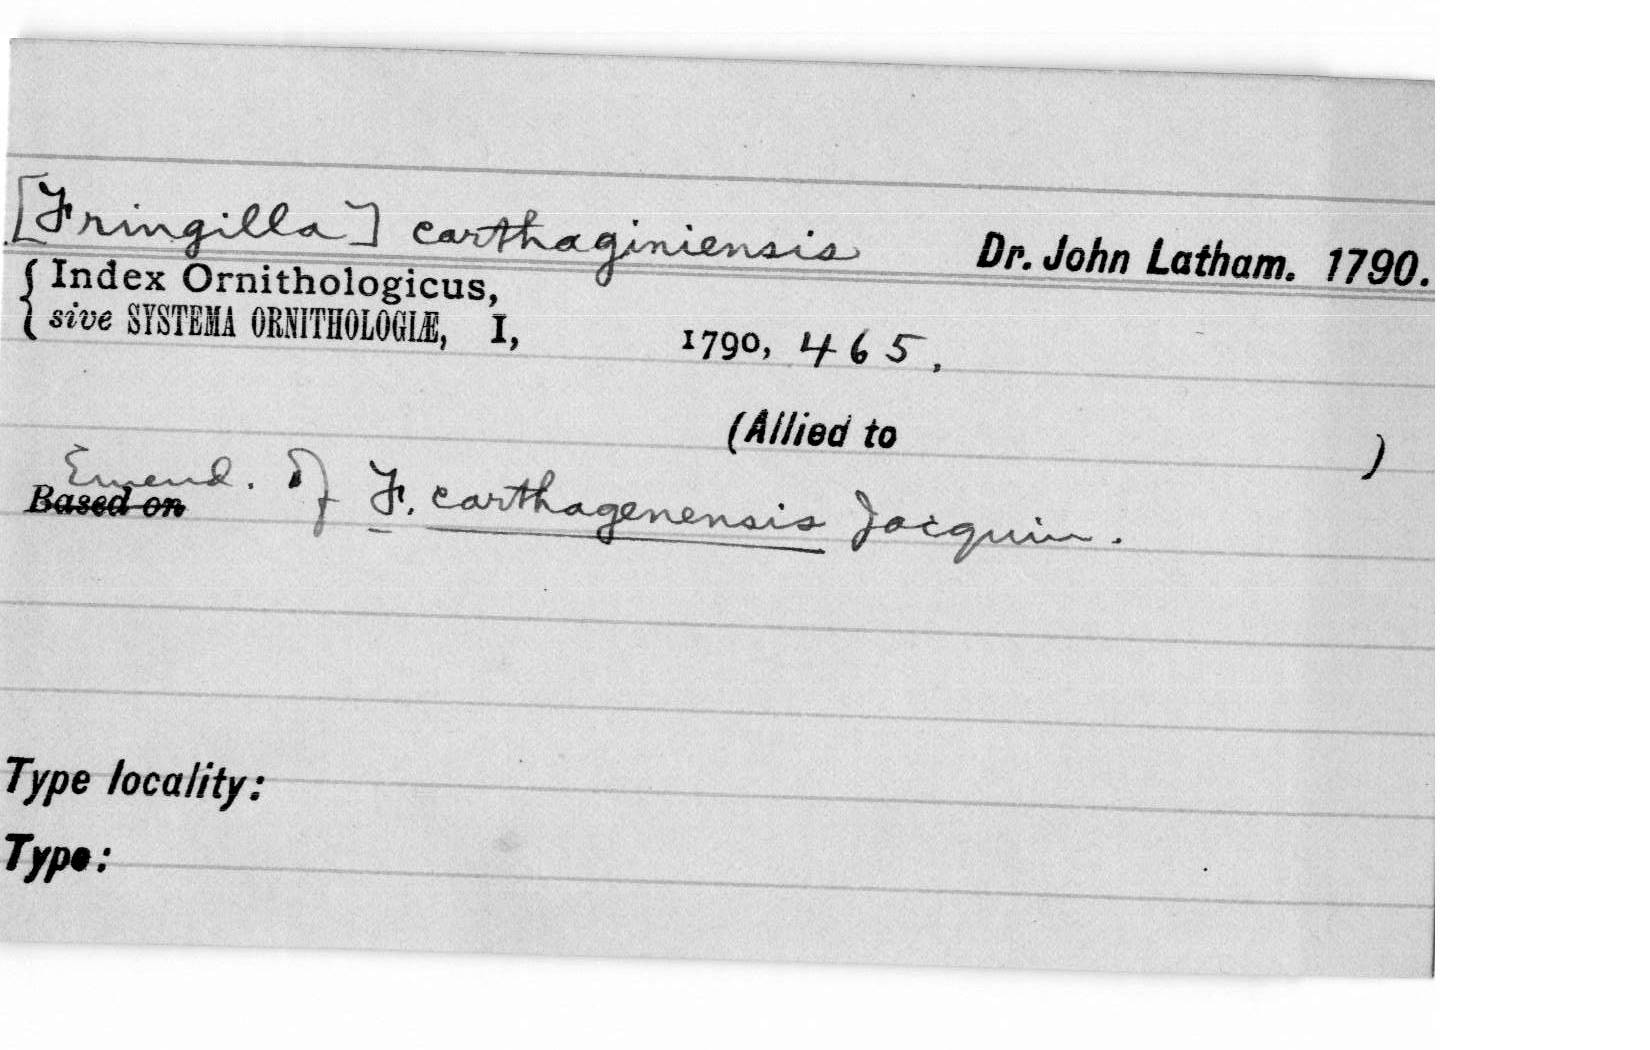 [Fringilla] carthaginiensis Dr. John Latham. 1790.
Index Ornithologicus,
sive SYSTEMA ORNITHOLOGIÆ, I, 1790, 465.
(Allied to )
Emend. of F. carthagenensis Jacquin.
Based on
Type locality:
Type: